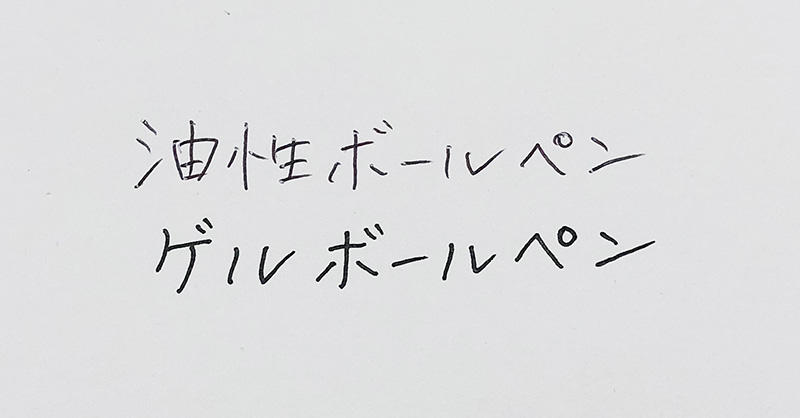 油性ボールペン
ゲルボールペン